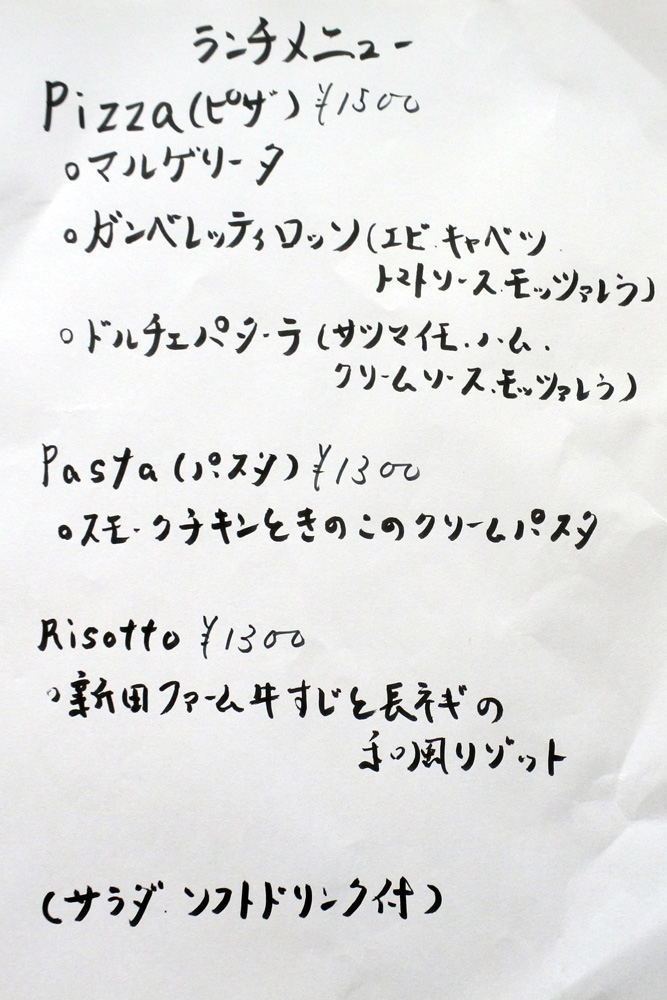 ランチメニュー
Pizza(ピザ) ¥1500
○マルゲリータ
○ガンベレッティロッソ(エビ.キャベツ.
トマトソース.モッツァレラ)
○ドルチェパターラ(サツマイモ.ハム.
クリームソース.モッツァレラ)
Pasta(パスタ) ¥1300
○スモークチキンときのこのクリームパスタ
Risotto ¥1300
○新田ファーム牛すじと長ネギの
和風リゾット
(サラダ.ソフトドリンク付)